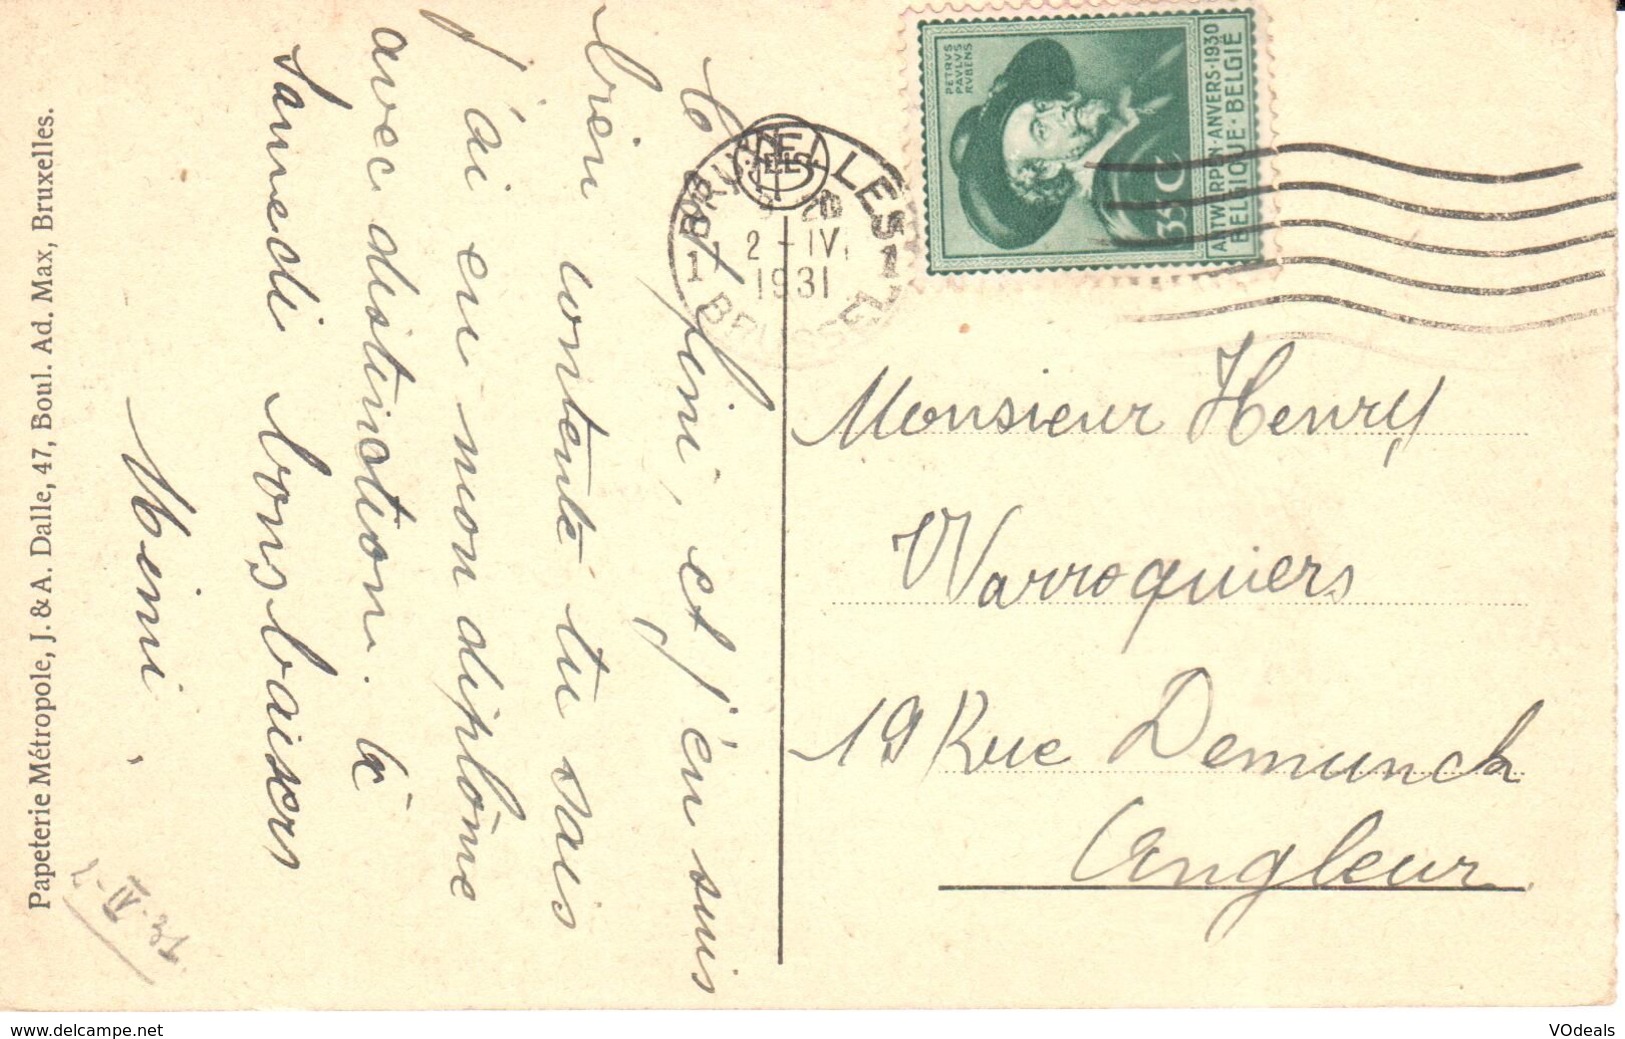 C'est fini, et j'en suis
bien contente tu sais
j'ai eu mon diplôme
avec distinction. à
samedi bons baisers
Mimi.
Papeterie Métropole, J. & A. Dalle, 47, Boul. Ad. Max, Bruxelles.
BRUXELLES
1 1
2 - IV.
1931
PETRVS
PAVLVS
RVBENS
35 C
ANTWERPEN·ANVERS·1930
BELGIQUE·BELGIË
Monsieur Henry
Warroquiers
19 Rue Demunck
Angleur
www.delcampe.net
VOdeals